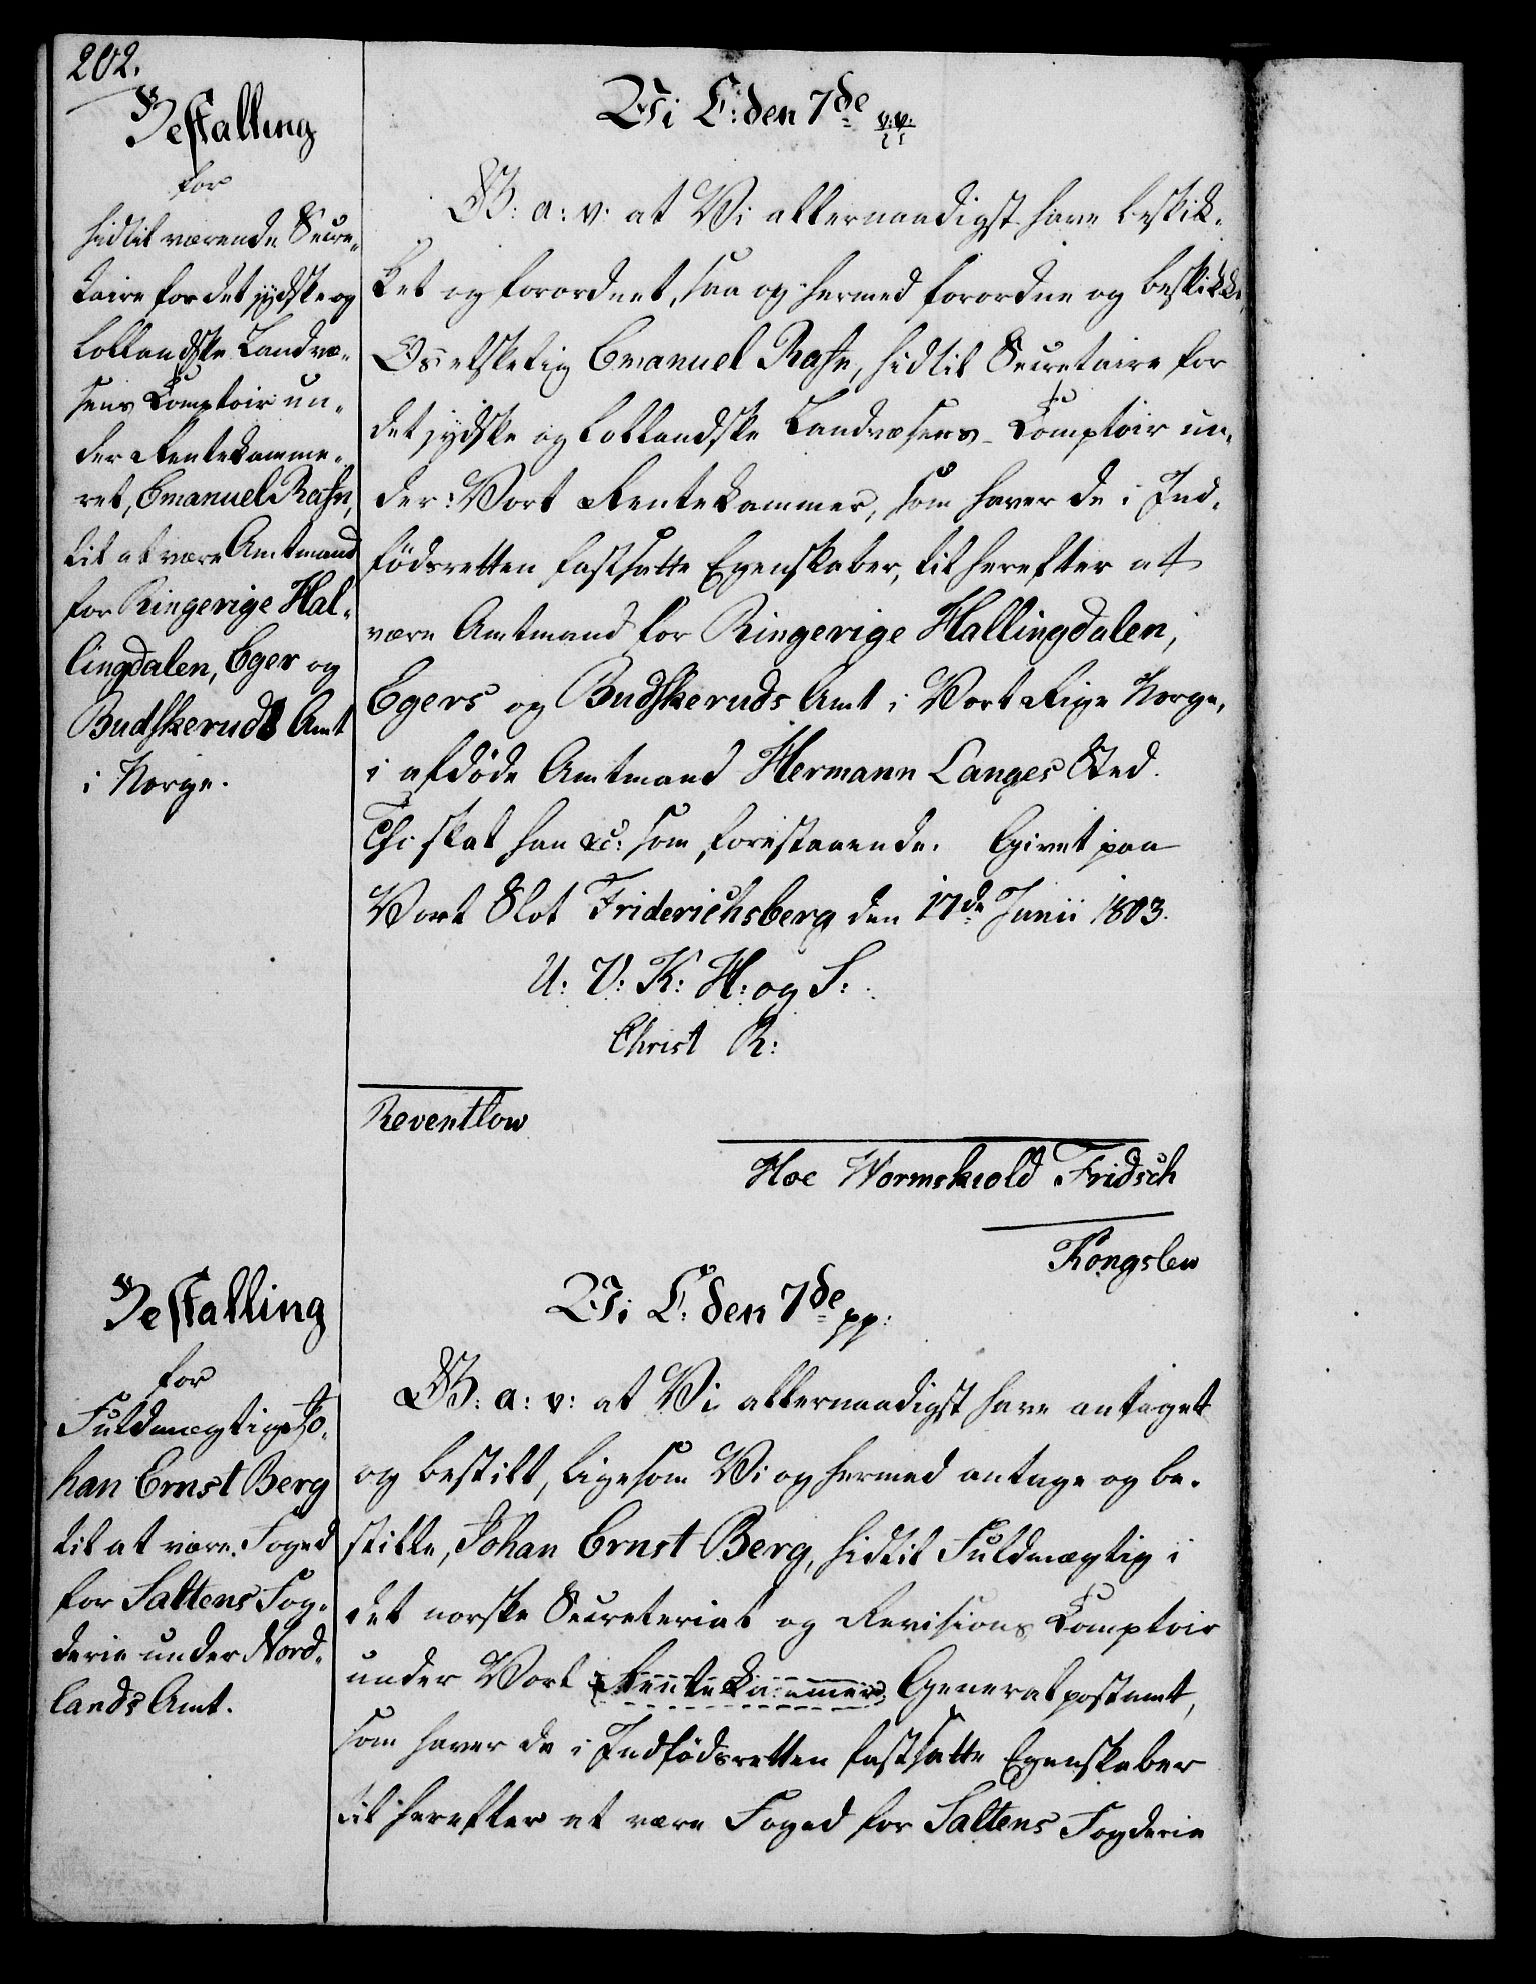 202.
Bestalling
for
hidtil værende Secre-
taire for det jydske og
lollandske Landvæ-
sens Comptoir un-
der Rentekamme-
ret, Emanuel Rafn,
til at være Amtmand
for Ringerige Hal-
lingdalen, Eger og
Budskeruds Amt
i Norge.
Vi C: den 7de p.p.
G: a: v: at Vi allernaadigst have beskik-
ket og forordnet, saa og hermed forordne og beskikke,
Os elskelig Emanuel Rafn, hidtil Secretaire for
det jydske og lollandske Landvæsens-Comptoir un-
der Vort Rentekammer, som haver de i Ind-
födsretten fastsatte Egenskaber, til herefter at
være Amtmand for Ringerige Hallingdalen,
Egers og Budskeruds Amt i Vort Rige Norge,
i afdöde Amtmand Hermann Langes Sted.
Thi skal han &c: som forestaaende. Givet paa
Vort Slot Friderichsberg den 17de Junii 1803.
U: V: K: H: og S:
Christ R:
Reventlow
Hoe Wormskiold Fridsch
Kongslew
Bestalling
for
Fuldmægtig Jo-
han Ernst Berg
til at være Foged
for Saltens Fog-
derie under Nord-
lands Amt.
Vi C: den 7de pp:
G: a: v: at Vi allernaadigst have antaget
og bestilt, ligesom Vi og hermed antage og be-
stille, Johan Ernst Berg, hidtil Fuldmægtig i
det norske Secreteriat og Revisions Comptoir
under Vort Rentekammer, Generalpostamt,
som haver de i Indfödsretten fastsatte Egenskaber
til herefter at være Foged for Saltens Fogderie